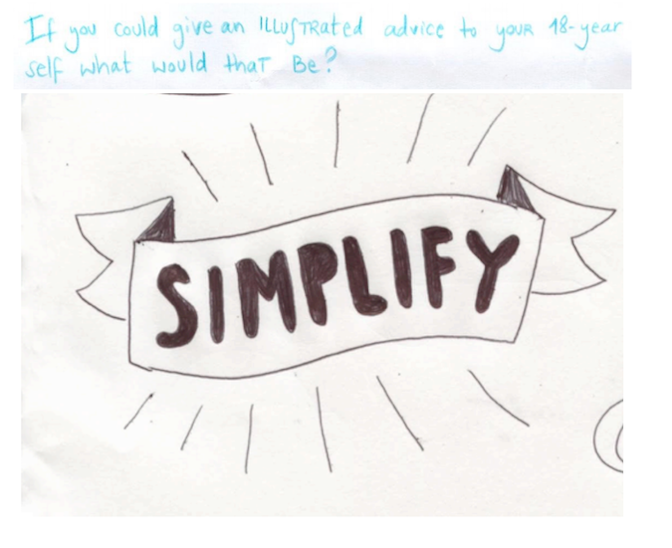 If you could give an ILLUSTRATED advice to YOUR 18-year
self what would that Be?
SIMPLIFY